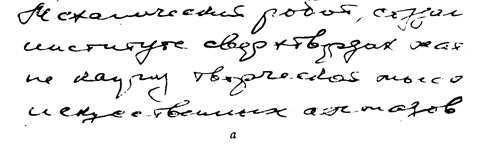 Механический робот, создан
институте сверхтвердых мат
не каплу творческой мысл
искусственных алмазов
а